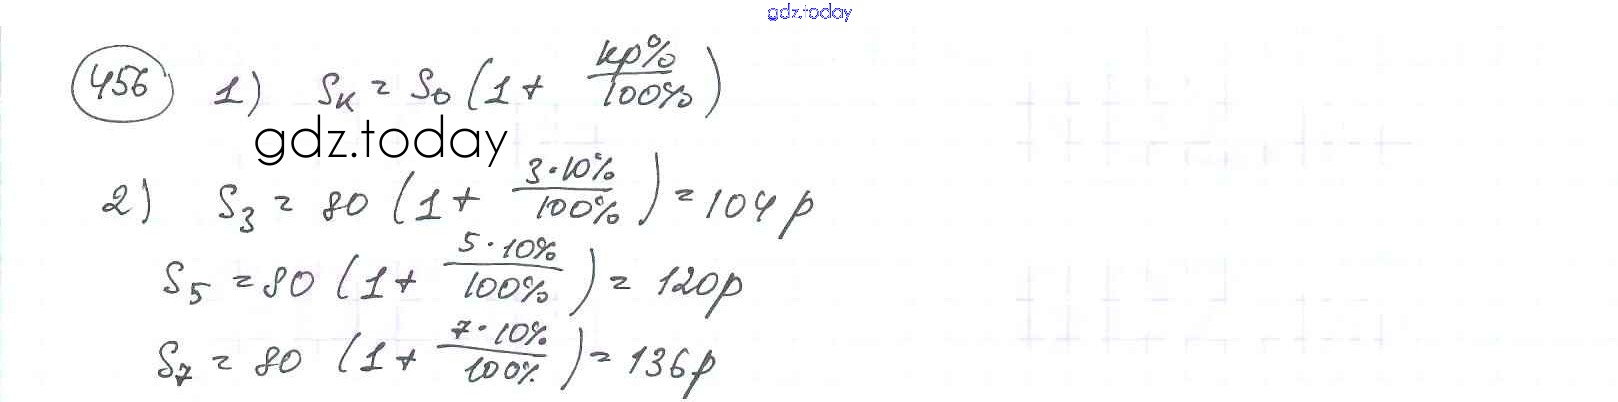 gdz.today
456 1) Sк = S₀ (1 + кр%/100%)
gdz.today
2) S₃ = 80 (1 + 3·10%/100%) = 104 р
S₅ = 80 (1 + 5·10%/100%) = 120р
S₇ = 80 (1 + 7·10%/100%) = 136р